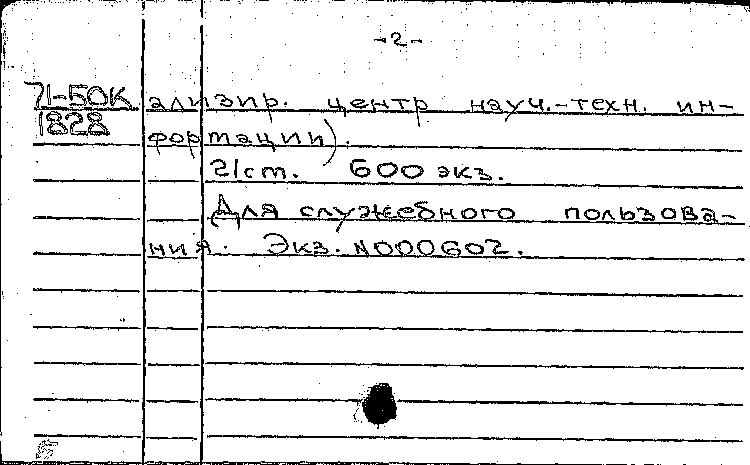 -2-
71-50К ализир. центр науч.-техн. ин-
1828 формации).
2/ст. 600 экз.
Для служебного пользова-
ния. Экз. N000602.